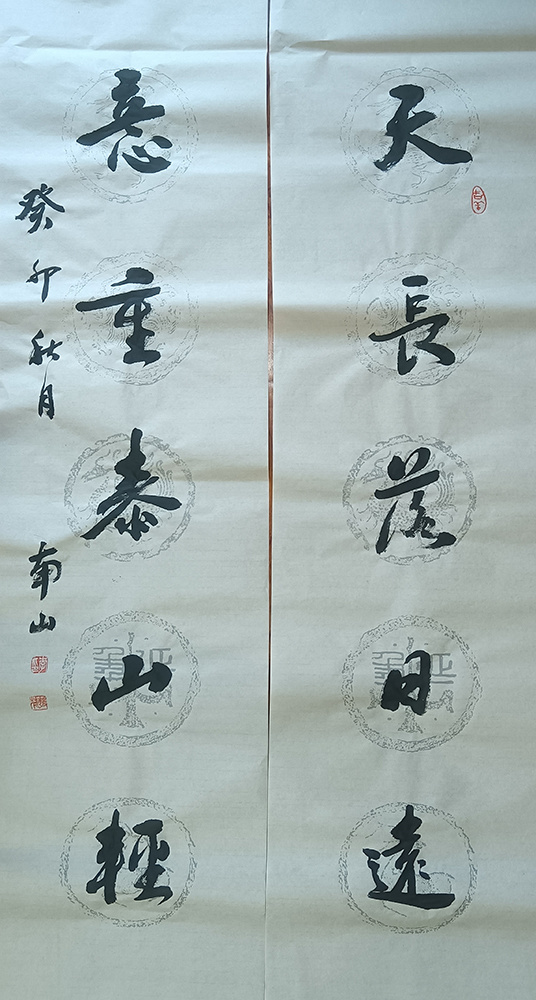 天長落日遠
意重泰山輕
癸卯秋月 南山